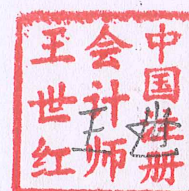 中国注册
会计师
王世红